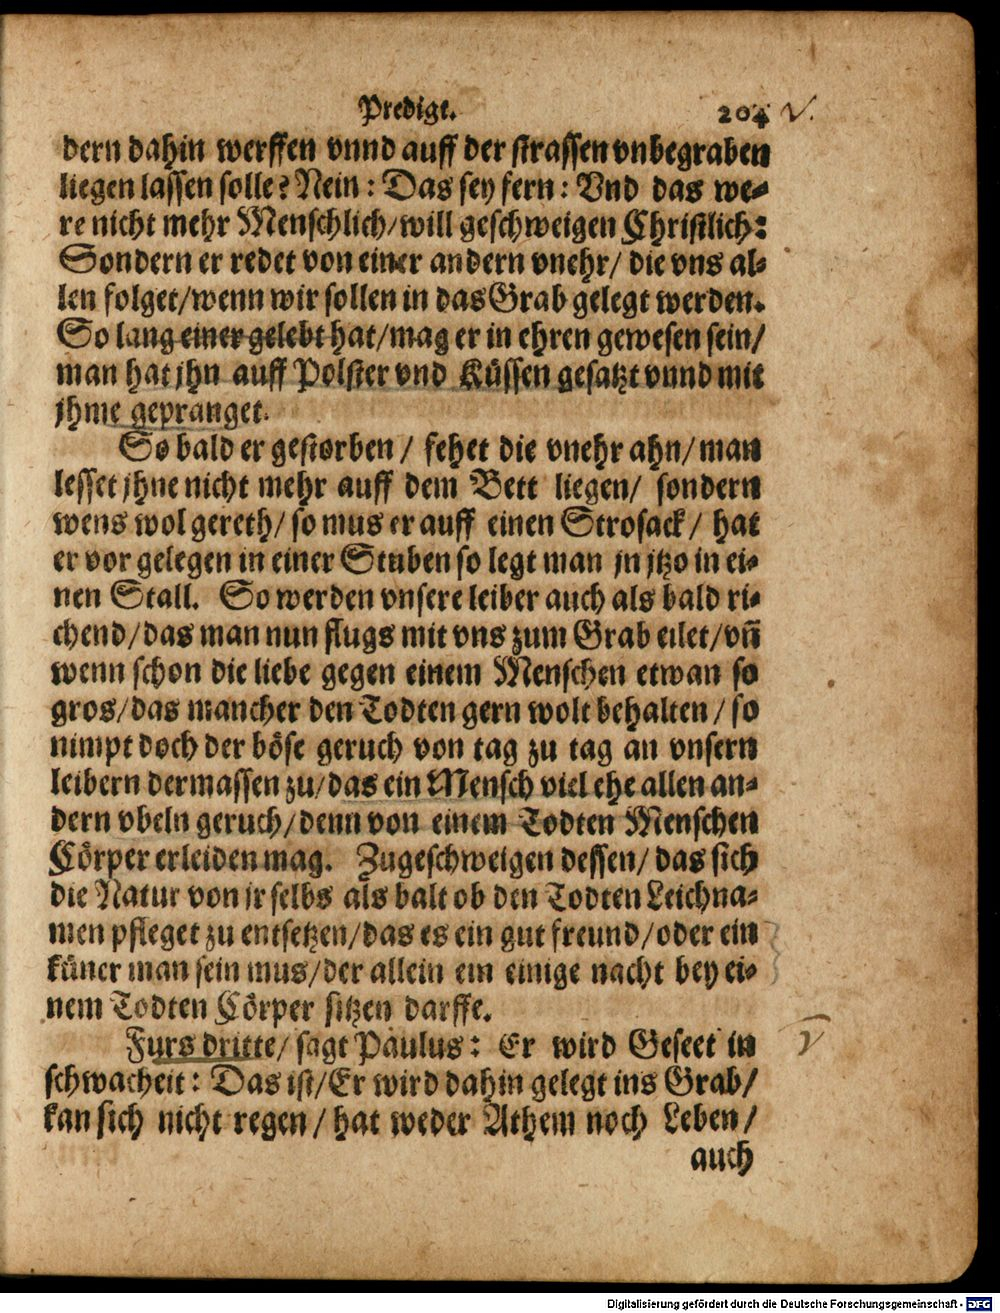 Predigt. 204 V.
dern dahin werffen vnnd auff der strassen vnbegraben
liegen lassen solle? Nein: Das sey fern: Vnd das we-
re nicht mehr Menschlich/will geschweigen Christlich:
Sondern er redet von einer andern vnehr/ die vns al-
len folget/wenn wir sollen in das Grab gelegt werden.
So lang einer gelebt hat/mag er in ehren gewesen sein/
man hat jhn auff Polster vnd Küssen gesatzt vnnd mit
jhme gepranget.
So bald er gestorben / fehet die vnehr ahn/man
lesset jhne nicht mehr auff dem Bett liegen/ sondern
wens wol gereth/ so mus er auff einen Strosack/ hat
er vor gelegen in einer Stuben so legt man jn jtzo in ei-
nen Stall. So werden vnsere leiber auch als bald ri-
chend/das man nun flugs mit vns zum Grab eilet/vñ
wenn schon die liebe gegen einem Menschen etwan so
gros/das mancher den Todten gern wolt behalten/ so
nimpt doch der böse geruch von tag zu tag an vnsern
leibern dermassen zu/das ein Mensch viel ehe allen an-
dern vbeln geruch/denn von einem Todten Menschen
Cörper erleiden mag. Zugeschweigen dessen/das sich
die Natur von jr selbs als balt ob den Todten Leichna-
men pfleget zu entsetzen/das es ein gut freund/oder ein
küner man sein mus/der allein ein einige nacht bey ei-
nem Todten Cörper sitzen darffe.
Furs dritte/ sagt Paulus: Er wird Geseet in
schwacheit: Das ist/Er wird dahin gelegt ins Grab/
kan sich nicht regen/ hat weder Athem noch Leben/
auch
Digitalisierung gefördert durch die Deutsche Forschungsgemeinschaft - DFG